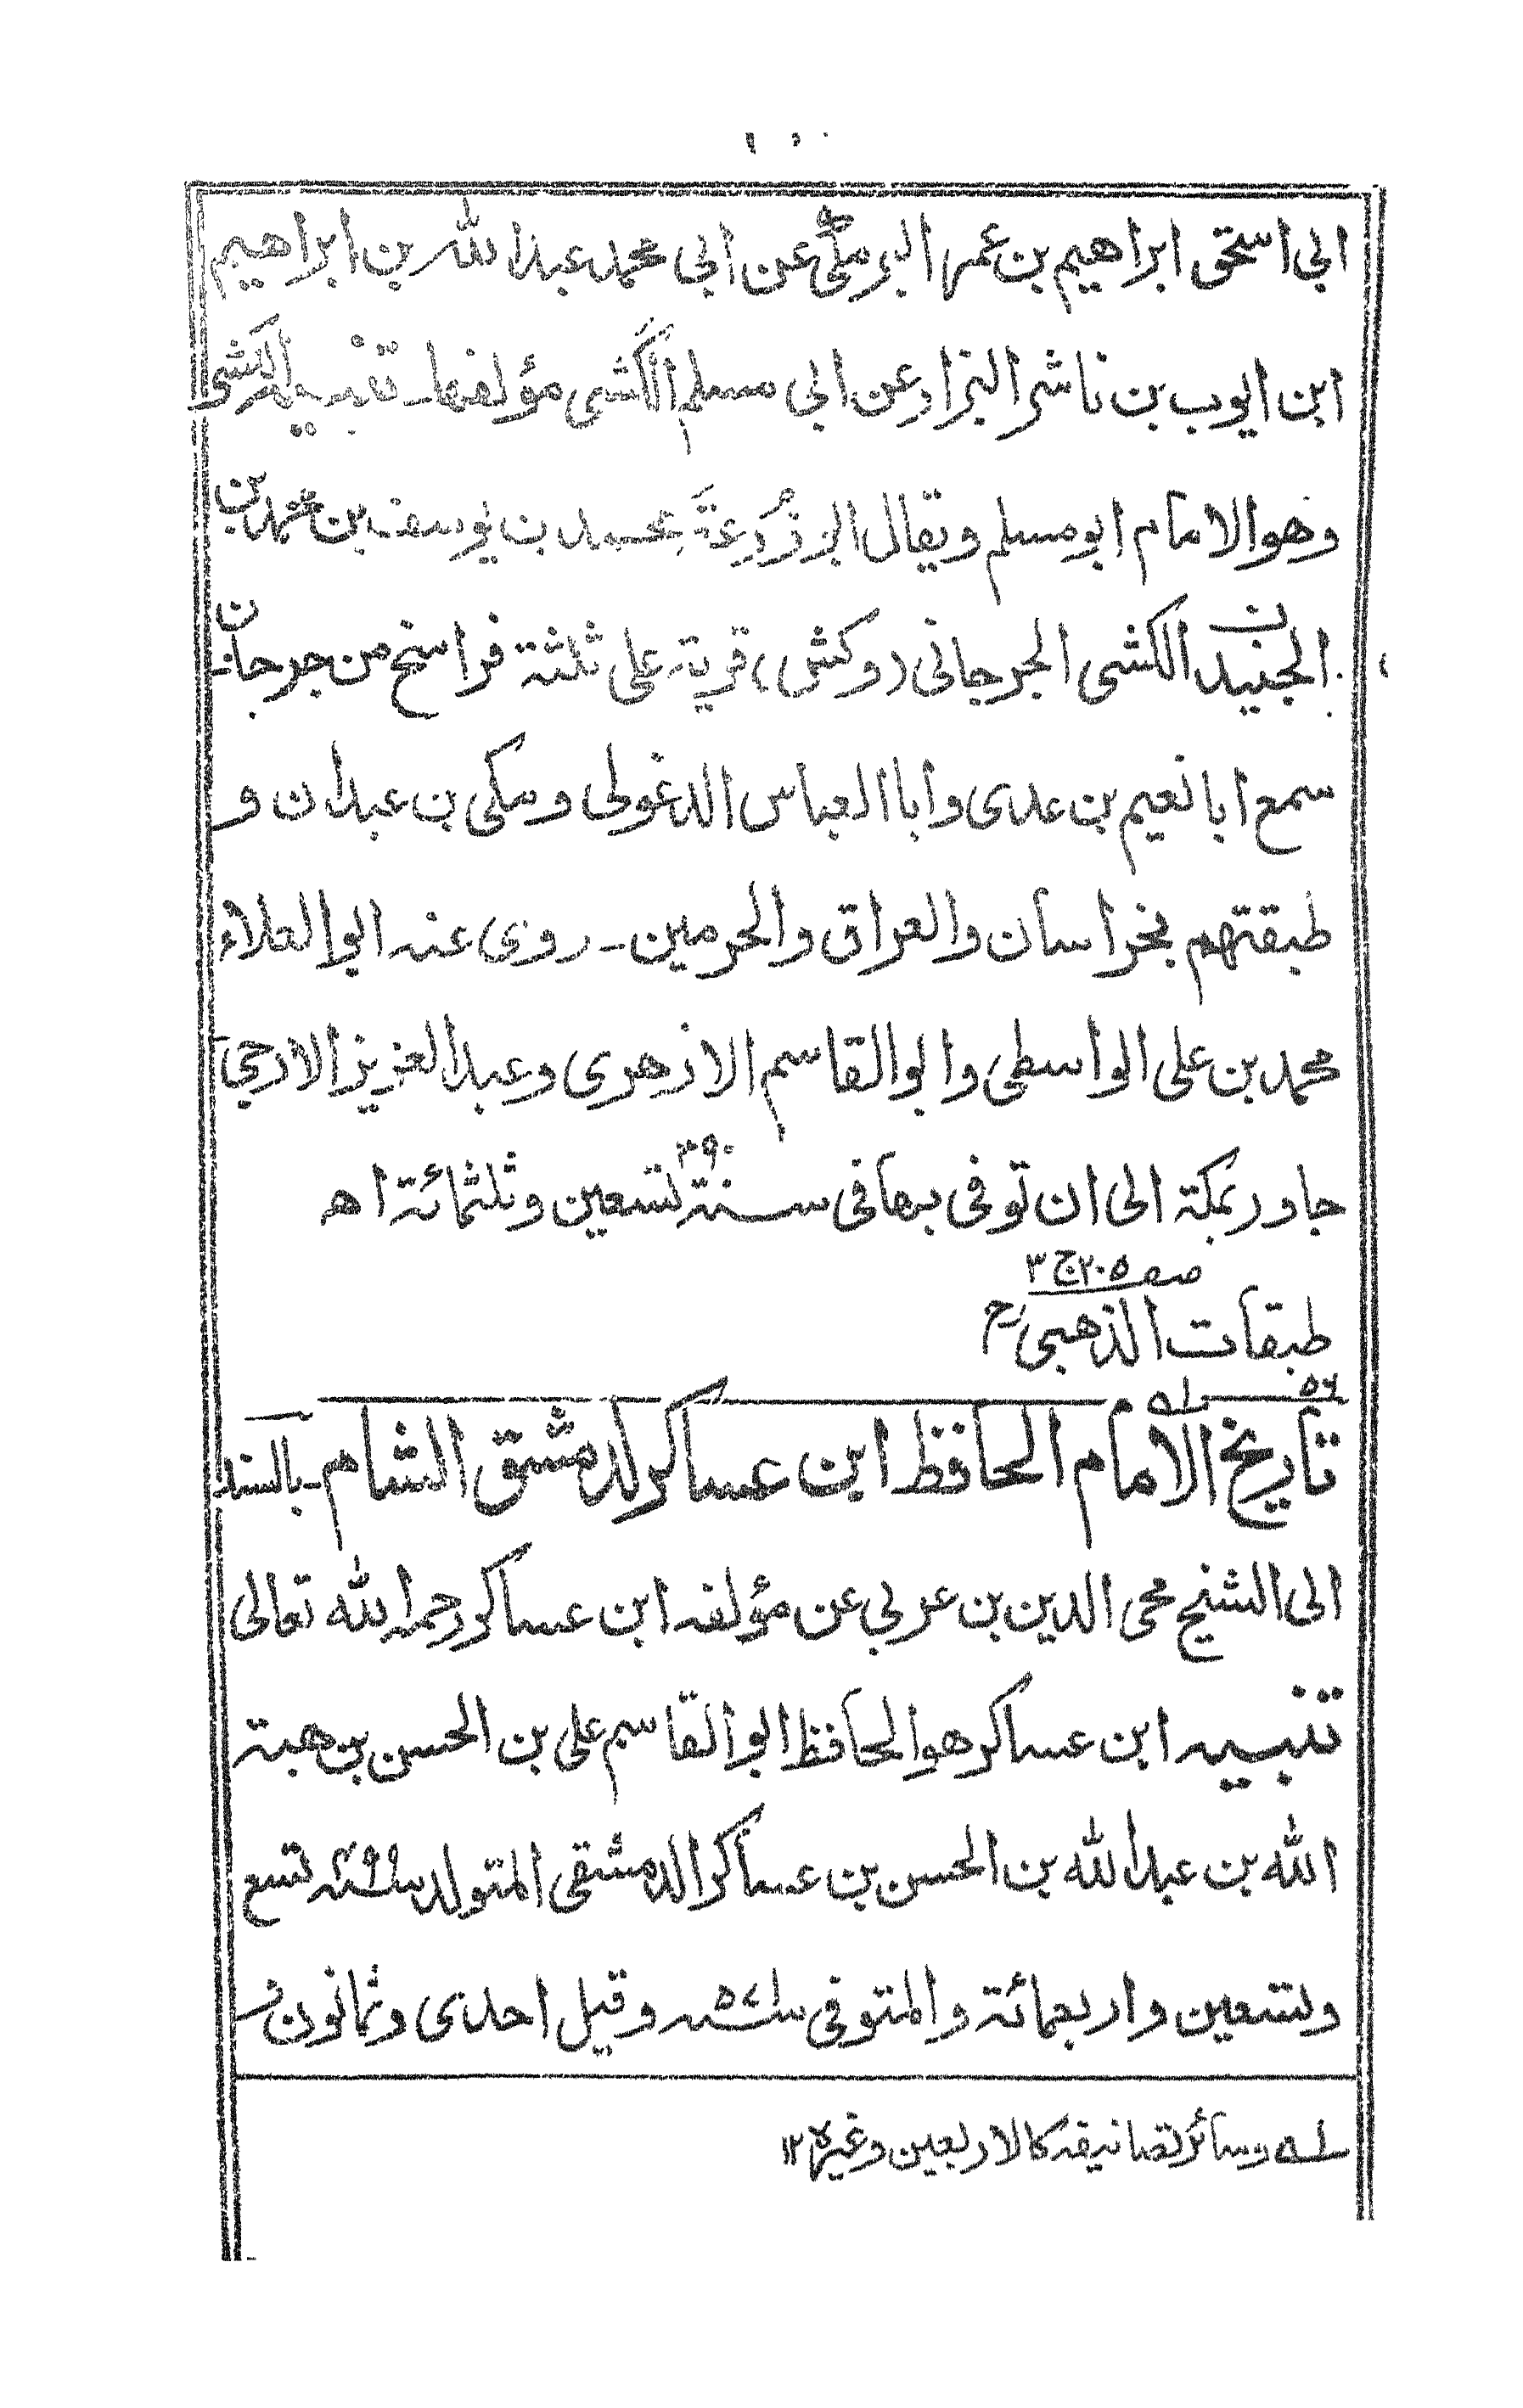 ابی اسحق ابراهیم بن عمر البرمکی عن ابی محمد عبد الله بن ابراهیم
ابن ایوب بن ناشر البزار عن ابی مسلم الکشی مؤلفها۔ تنبیه الکشی
وهو الامام ابو مسلم ویقال ابو زُرعَةَ محمد بن یوسف بن محمد بن
الجنید الکشی الجرجانی (وکش) قریة علی ثلثة فراسخ من جرجان
سمع ابا نعیم بن عدی وابا العباس الدغولی ومکی بن عبدان و
طبقتهم بخراسان والعراق والحرمین۔ روی عنه ابو العلاء
محمد بن علی الواسطی وابو القاسم الازهری وعبد العزیز الازجی
جاور بمکة الی ان توفی بها فی سنة ٣٩٠ تسعین وثلثمائة اھ
صفه ٢٠٥ ج ٣
طبقات الذهبی رح
٥٦
تاریخ الامام الحافظ ابن عساکر لدمشق الشام۔ بالسند
الی الشیخ محی الدین بن عربی عن مؤلفه ابن عساکر رحمه الله تعالی
تنبیه ابن عساکر هو الحافظ ابو القاسم علی بن الحسن بن هبة
الله بن عبد الله بن الحسن بن عساکر الدمشقی المتولد سنة ٤٩٩ تسع
وتسعین واربعمائة والمتوفی سنة ٥٧١ وقیل احدی وثمانون
لے وسائر تصانیفه کالاربعین وغیره ١٢